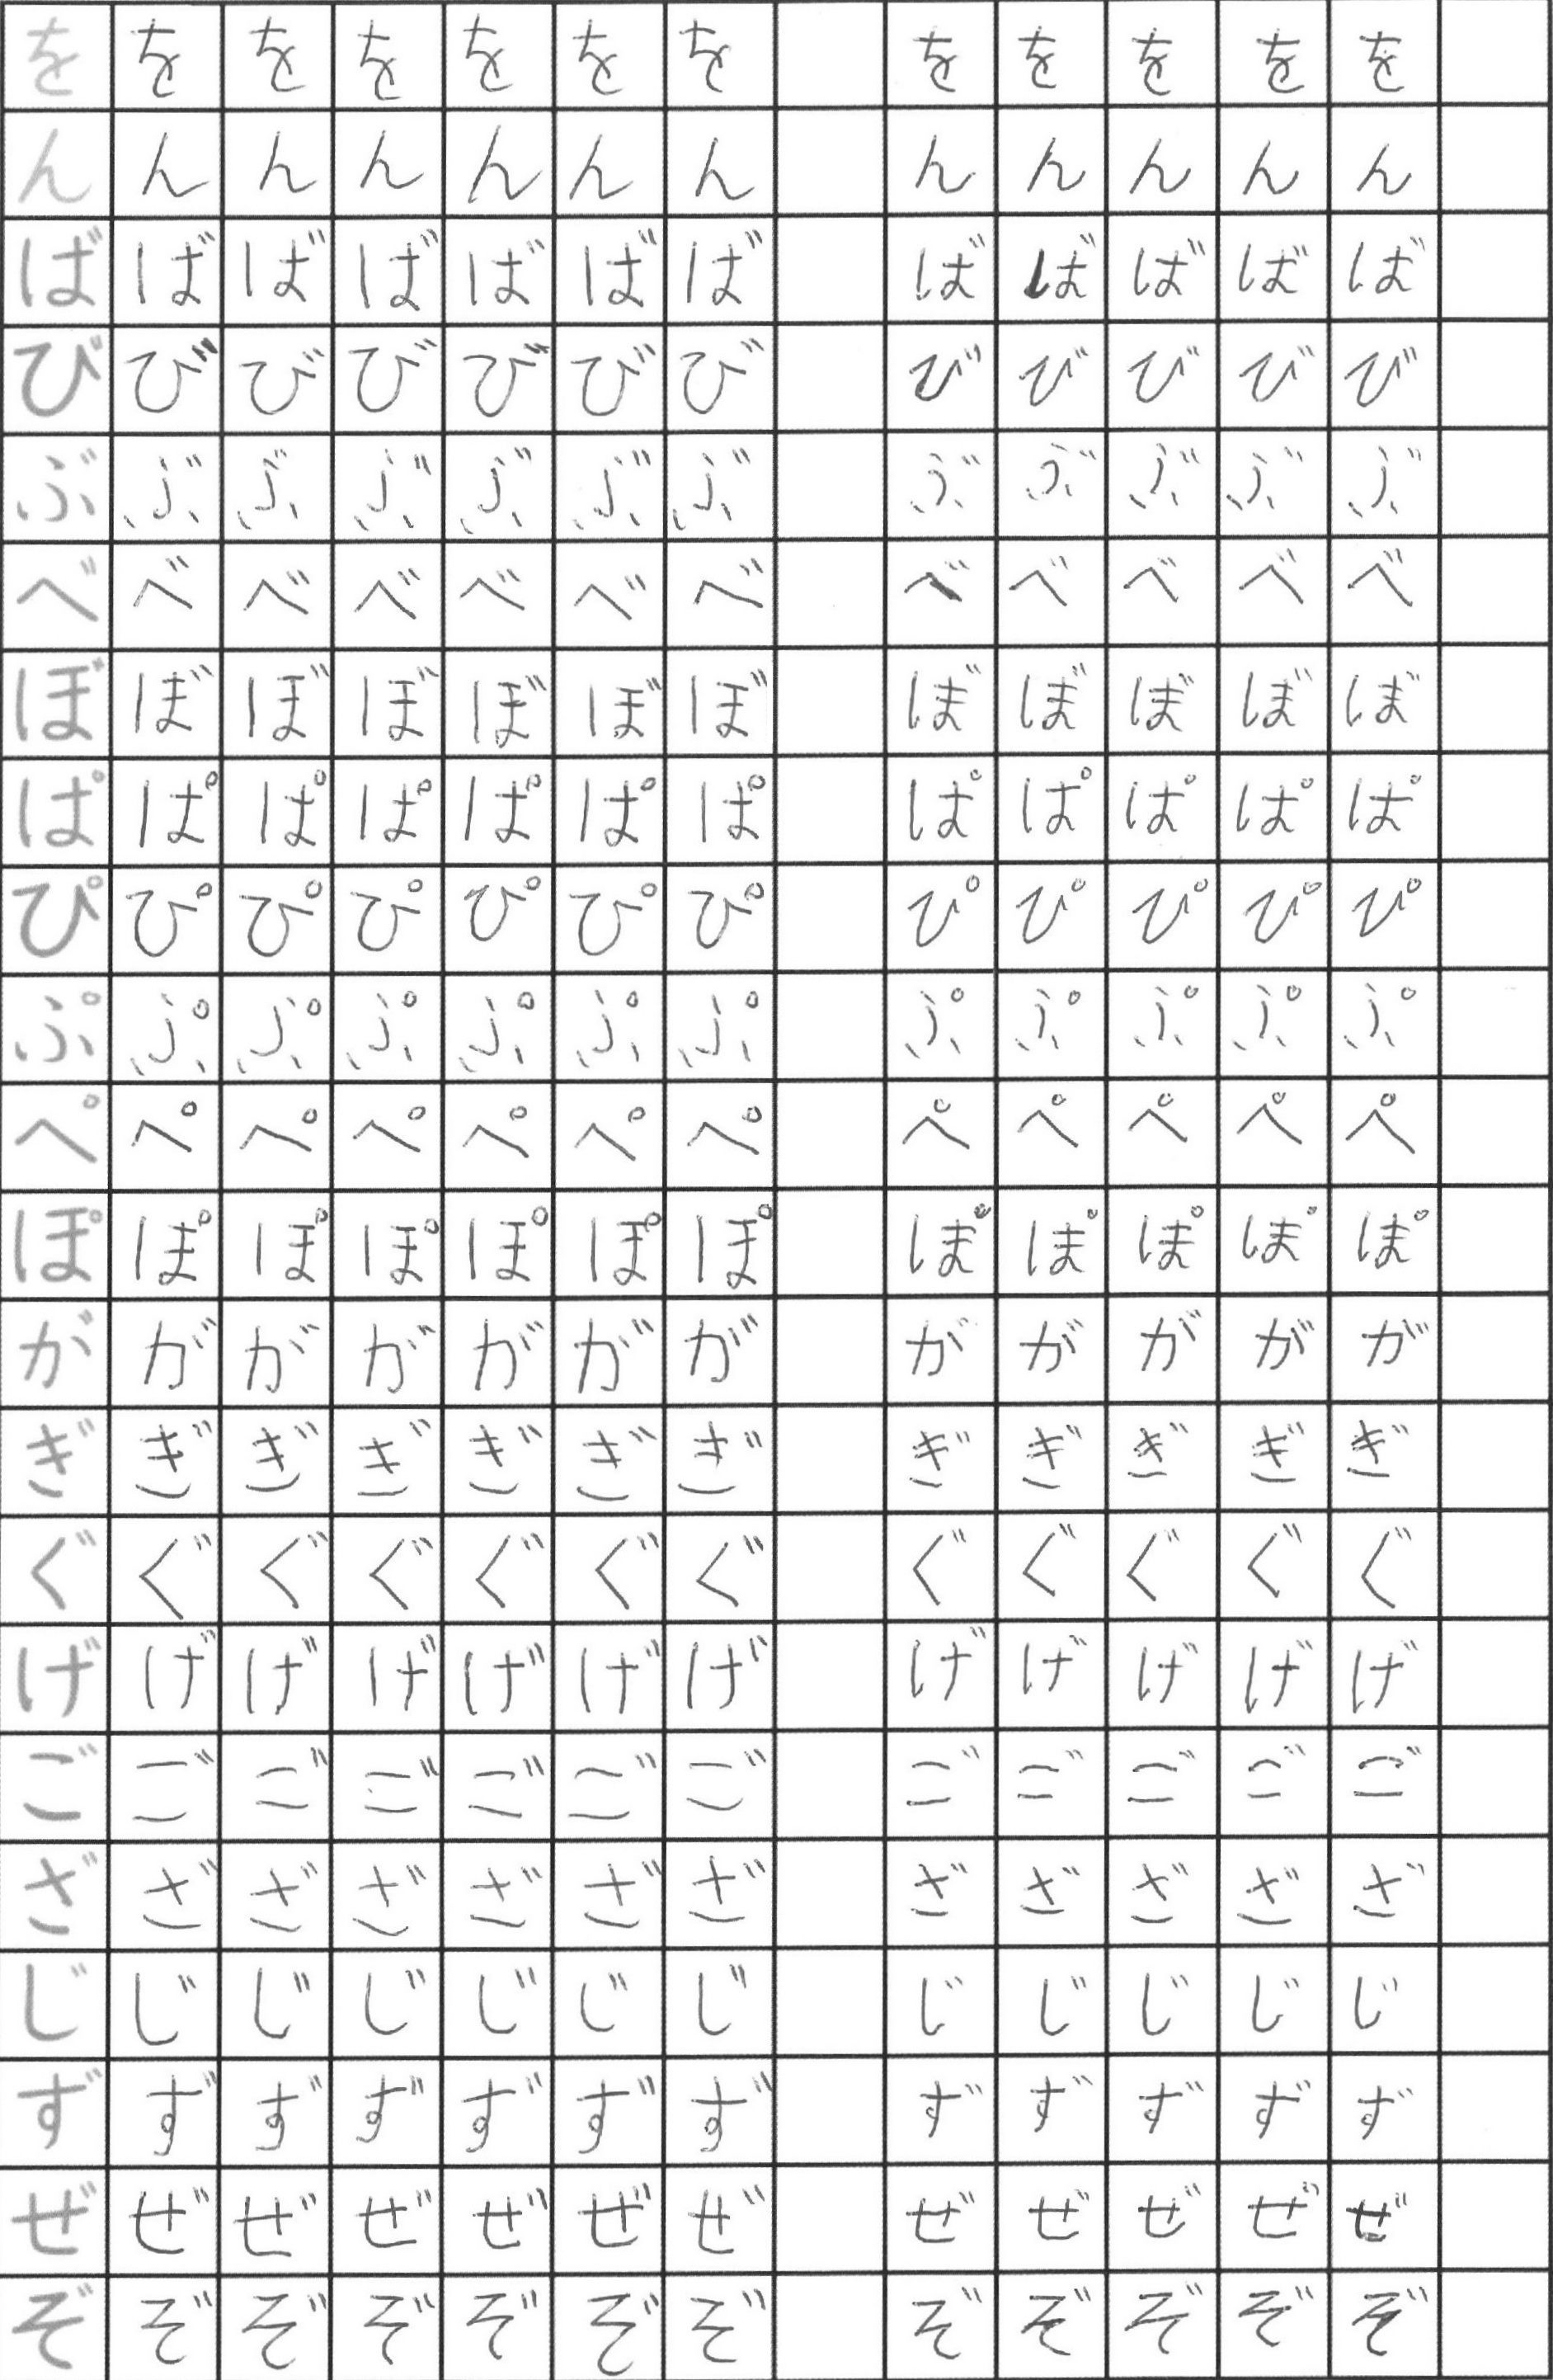 を を を を を を を を を を を を
ん ん ん ん ん ん ん ん ん ん ん ん
ば ば ば ば ば ば ば ば ば ば ば ば
び び び び び び び び び び び び
ぶ ぶ ぶ ぶ ぶ ぶ ぶ ぶ ぶ ぶ ぶ ぶ
べ べ べ べ べ べ べ べ べ べ べ べ
ぼ ぼ ぼ ぼ ぼ ぼ ぼ ぼ ぼ ぼ ぼ ぼ
ぱ ぱ ぱ ぱ ぱ ぱ ぱ ぱ ぱ ぱ ぱ ぱ
ぴ ぴ ぴ ぴ ぴ ぴ ぴ ぴ ぴ ぴ ぴ ぴ
ぷ ぷ ぷ ぷ ぷ ぷ ぷ ぷ ぷ ぷ ぷ ぷ
ぺ ぺ ぺ ぺ ぺ ぺ ぺ ぺ ぺ ぺ ぺ ぺ
ぽ ぽ ぽ ぽ ぽ ぽ ぽ ぽ ぽ ぽ ぽ ぽ
が が が が が が が が が が が が
ぎ ぎ ぎ ぎ ぎ ぎ ぎ ぎ ぎ ぎ ぎ ぎ
ぐ ぐ ぐ ぐ ぐ ぐ ぐ ぐ ぐ ぐ ぐ ぐ
げ げ げ げ げ げ げ げ げ げ げ げ
ご ご ご ご ご ご ご ご ご ご ご ご
ざ ざ ざ ざ ざ ざ ざ ざ ざ ざ ざ ざ
じ じ じ じ じ じ じ じ じ じ じ じ
ず ず ず ず ず ず ず ず ず ず ず ず
ぜ ぜ ぜ ぜ ぜ ぜ ぜ ぜ ぜ ぜ ぜ ぜ
ぞ ぞ ぞ ぞ ぞ ぞ ぞ ぞ ぞ ぞ ぞ ぞ